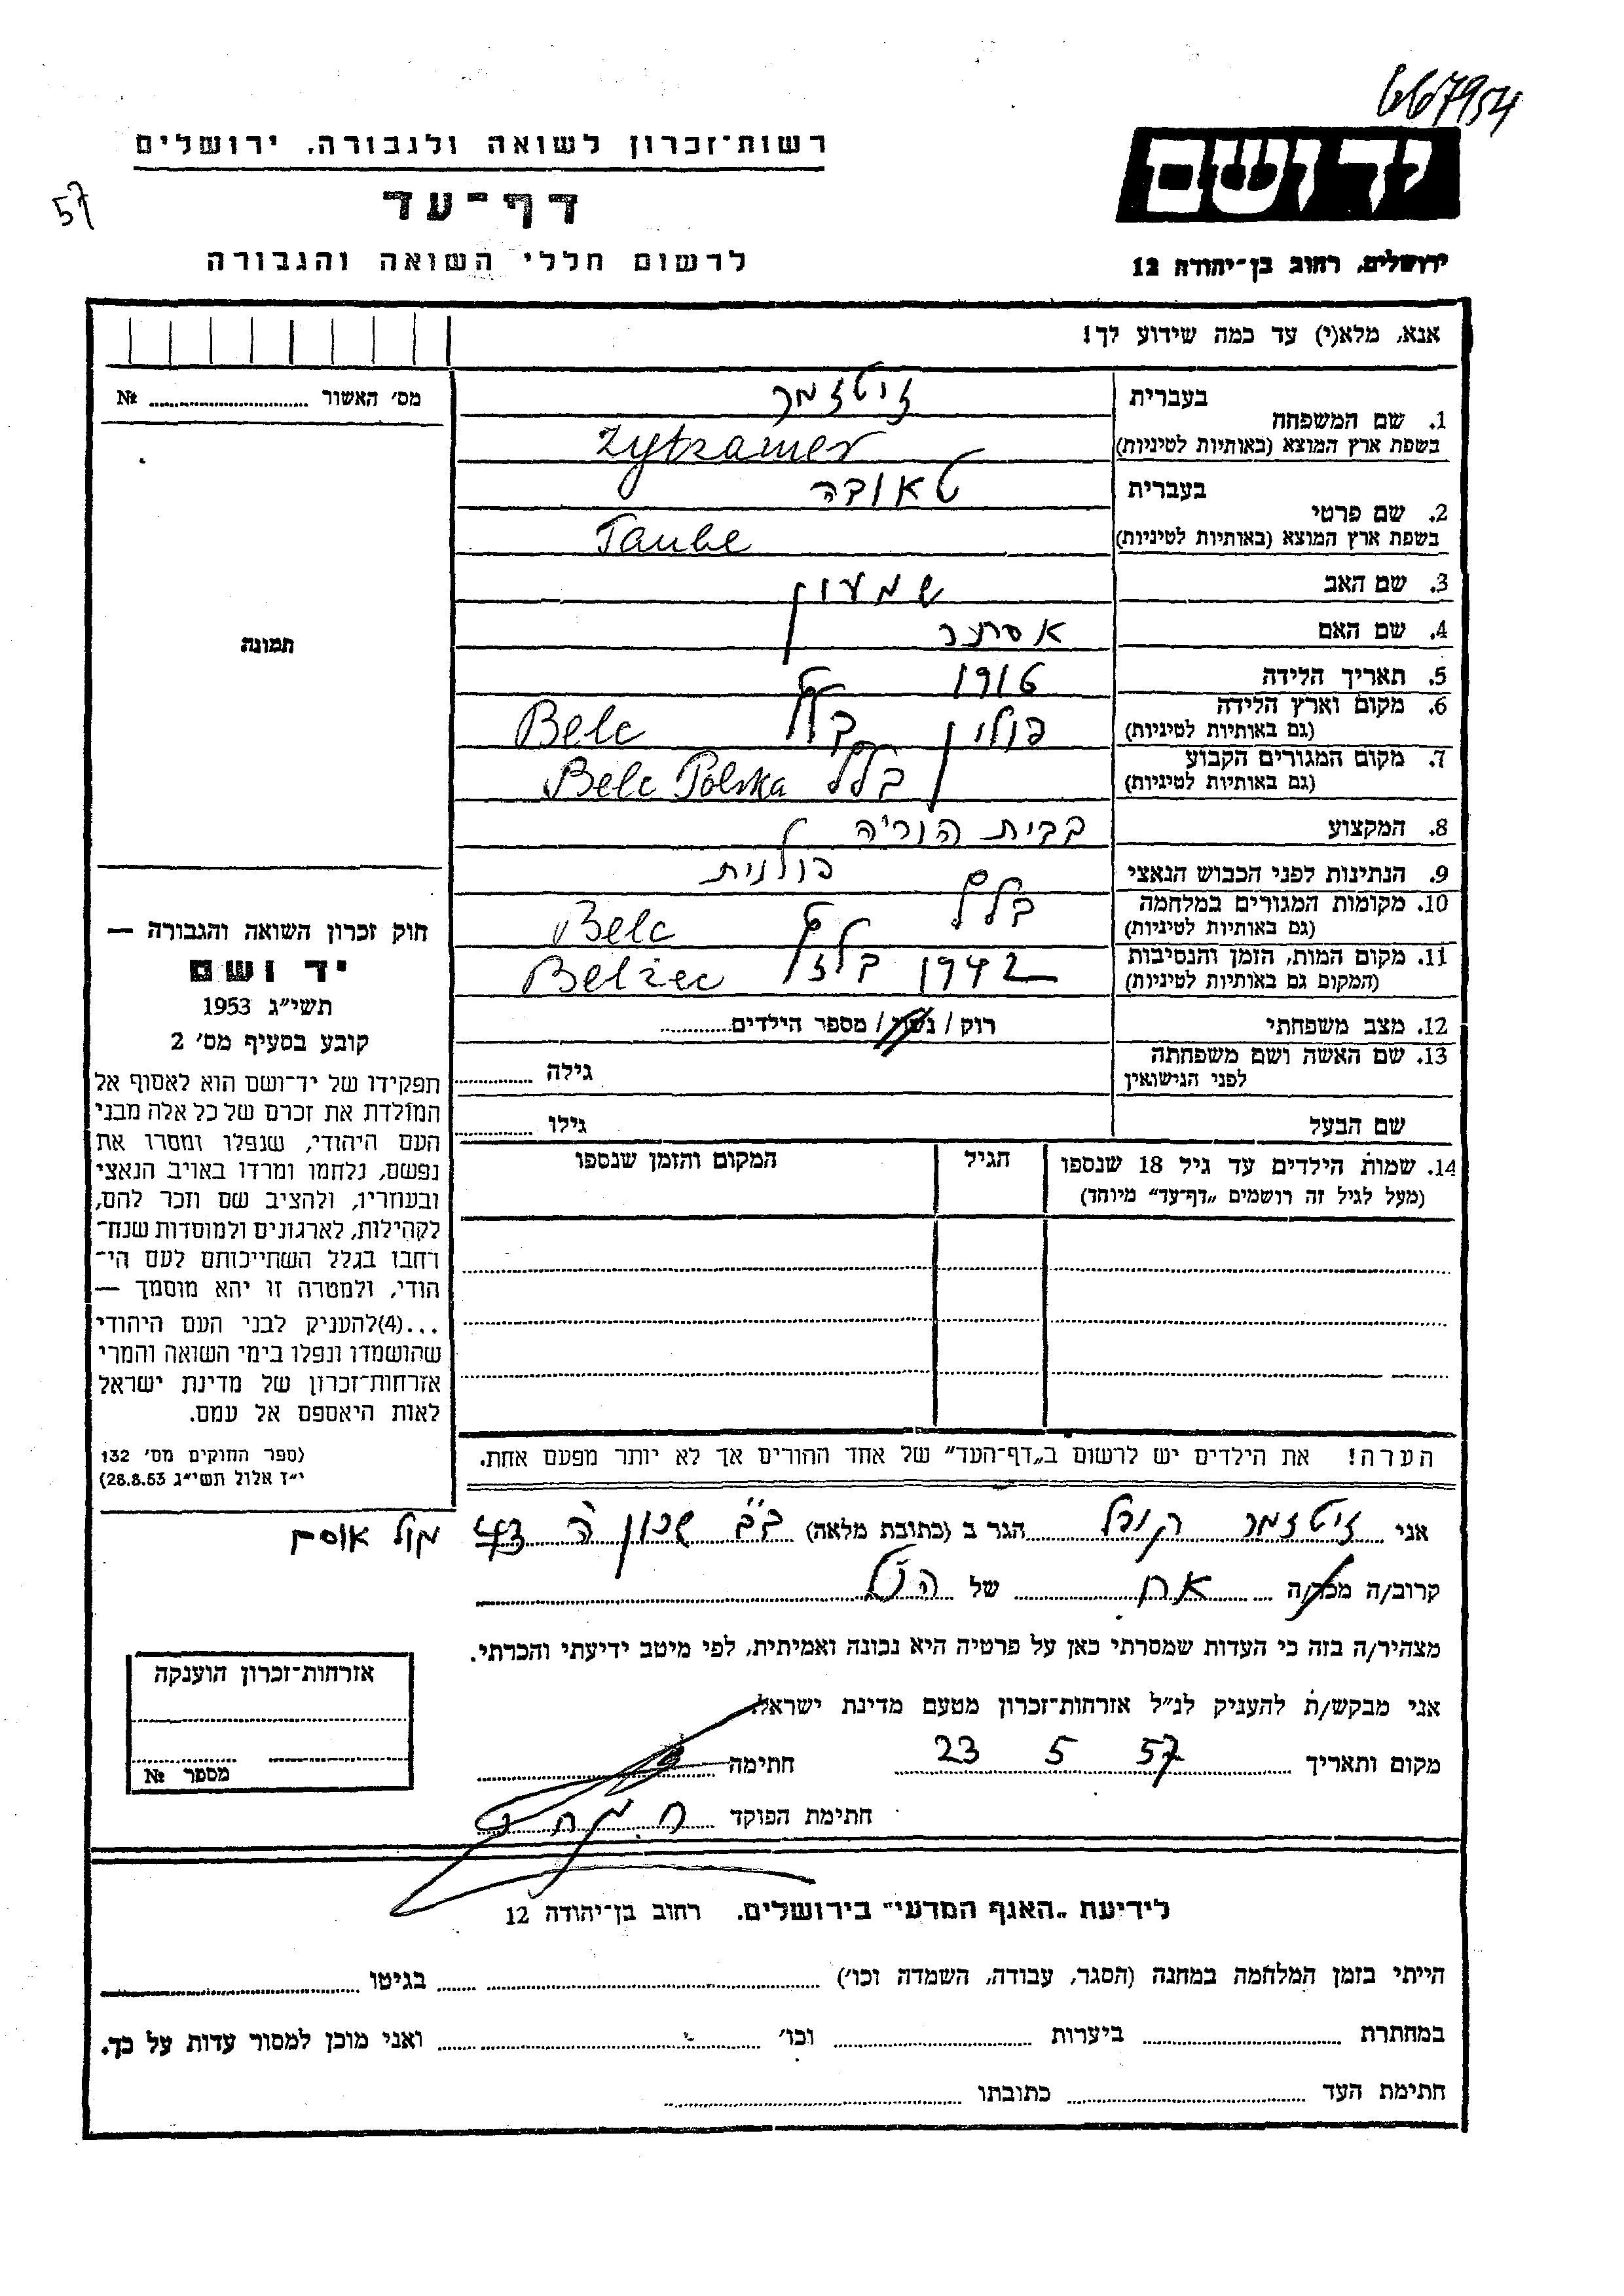 667954
רשות־זכרון לשואה ולגבורה. ירושלים
יד ושם
57
דף־עד
לרשום חללי השואה והגבורה
ירושלים, רחוב בן־יהודה 12
אנא, מלא(י) עד כמה שידוע לך!
מס׳ האשור № 
1. שם המשפחה
בעברית זיטזמר
בשפת ארץ המוצא (באותיות לטיניות) Zytzamer
2. שם פרטי
בעברית טאובה
בשפת ארץ המוצא (באותיות לטיניות) Taube
3. שם האב שמעון
4. שם האם אסתר
5. תאריך הלידה 1916
6. מקום וארץ הלידה פולין בלז Belc
(גם באותיות לטיניות)
7. מקום המגורים הקבוע בלז Belc Polska
(גם באותיות לטיניות)
8. המקצוע בבית הוריה
9. הנתינות לפני הכבוש הנאצי פולנית
10. מקומות המגורים במלחמה בלז Belc
(גם באותיות לטיניות)
11. מקום המות, הזמן והנסיבות 1942 Belżec
(המקום גם באותיות לטיניות)
12. מצב משפחתי רוק / נשוי / מספר הילדים
13. שם האשה ושם משפחתה גילה
לפני הנישואין
שם הבעל גילו
14. שמות הילדים עד גיל 18 שנספו הגיל המקום והזמן שנספו
(מעל לגיל זה רושמים „דף־עד״ מיוחד)
הערה! את הילדים יש לרשום ב„דף־העד״ של אחד ההורים אך לא יותר מפעם אחת.
תמונה
חוק זכרון השואה והגבורה —
יד ושם
תשי״ג 1953
קובע בסעיף מס׳ 2
תפקידו של יד־ושם הוא לאסוף אל
המולדת את זכרם של כל אלה מבני
העם היהודי, שנפלו ומסרו את
נפשם, נלחמו ומרדו באויב הנאצי
ובעוזריו, ולהציב שם וזכר להם,
לקהילות, לארגונים ולמוסדות שנח־
רחבו בגלל השתייכותם לעם הי־
הודי, ולמטרה זו יהא מוסמך —
...(4)להעניק לבני העם היהודי
שהושמדו ונפלו בימי השואה והמרי
אזרחות־זכרון של מדינת ישראל
לאות היאספם אל עמם.
(ספר החוקים מס׳ 132
י״ז אלול תשי״ג 28.8.53)
אני זיטזמר קופל הגר ב (כתובת מלאה) ב״ב שכון ה
קרוב/ה מכר/ה אח של הנ״ל
מצהיר/ה בזה כי העדות שמסרתי כאן על פרטיה היא נכונה ואמיתית, לפי מיטב ידיעתי והכרתי.
אני מבקש/ת להעניק לנ״ל אזרחות־זכרון מטעם מדינת ישראל.
מקום ותאריך 23 5 57 חתימה
חתימת הפוקד
אזרחות־זכרון הוענקה
מספר №
לידיעת „האגף המדעי״ בירושלים. רחוב בן־יהודה 12
הייתי בזמן המלחמה במחנה (הסגר, עבודה, השמדה וכו׳) בגיטו
במחתרת ביערות וכו׳ ואני מוכן למסור עדות על כך.
חתימת העד כתובתו